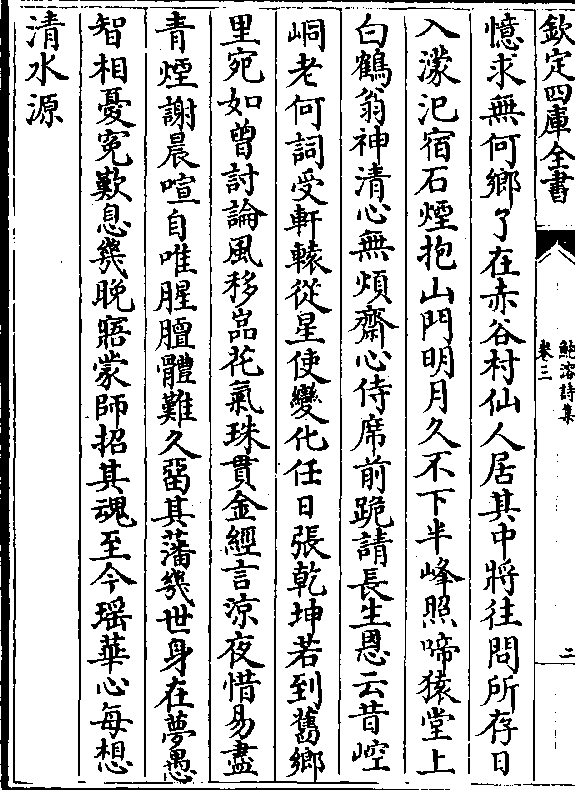 欽定四庫全書
鮑溶詩集
卷三
二
憶求無何鄉了在赤谷村仙人居其中將往問所存日
入濛汜宿石煙抱山門明月久不下半峰照啼猿堂上
白鶴翁神清心無煩齋心侍席前跪請長生恩云昔崆
峒老何詞受軒轅從星使變化任日張乾坤若到舊鄉
里宛如曾討論風移嵓花氣珠貫金經言涼夜惜易盡
青煙謝晨喧自唯腥膻體難久曷其藩幾世身在夢愚
智相憂寃歎息幾晚寤蒙師招其魂至今瑶華心每想
清水源